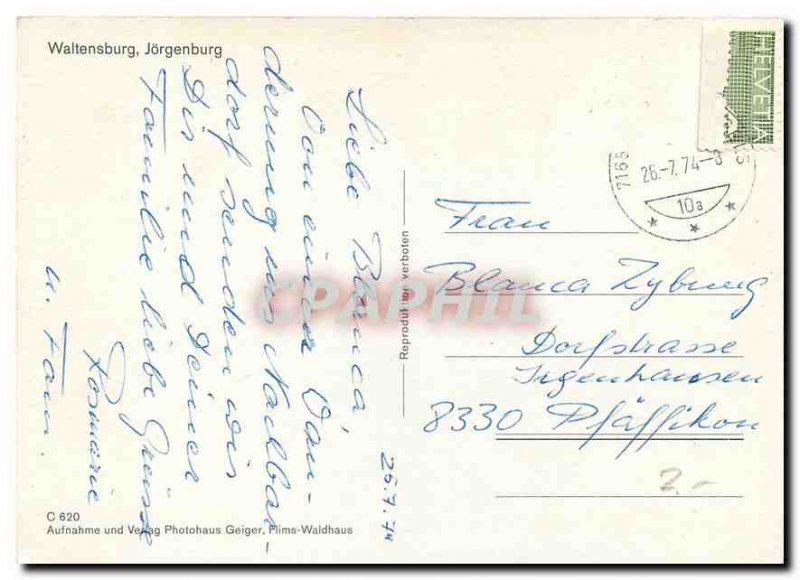 Waltensburg, Jörgenburg
26.7.74
Liebe Blanca,
Von einer Wan-
derung ins Nachbar-
dorf senden wir
Dir und Deiner
Familie liebe Grüsse
Rosmarie
u. Fam.
C 620
Aufnahme und Verlag Photohaus Geiger, Flims-Waldhaus
Reproduktion verboten
HELVETIA
7165
26.-7.74-8
10a
Frau
Blanca Zyburg
Dorfstrasse
Irgenhausen
8330 Pfäffikon
2.-
CPAPHIL